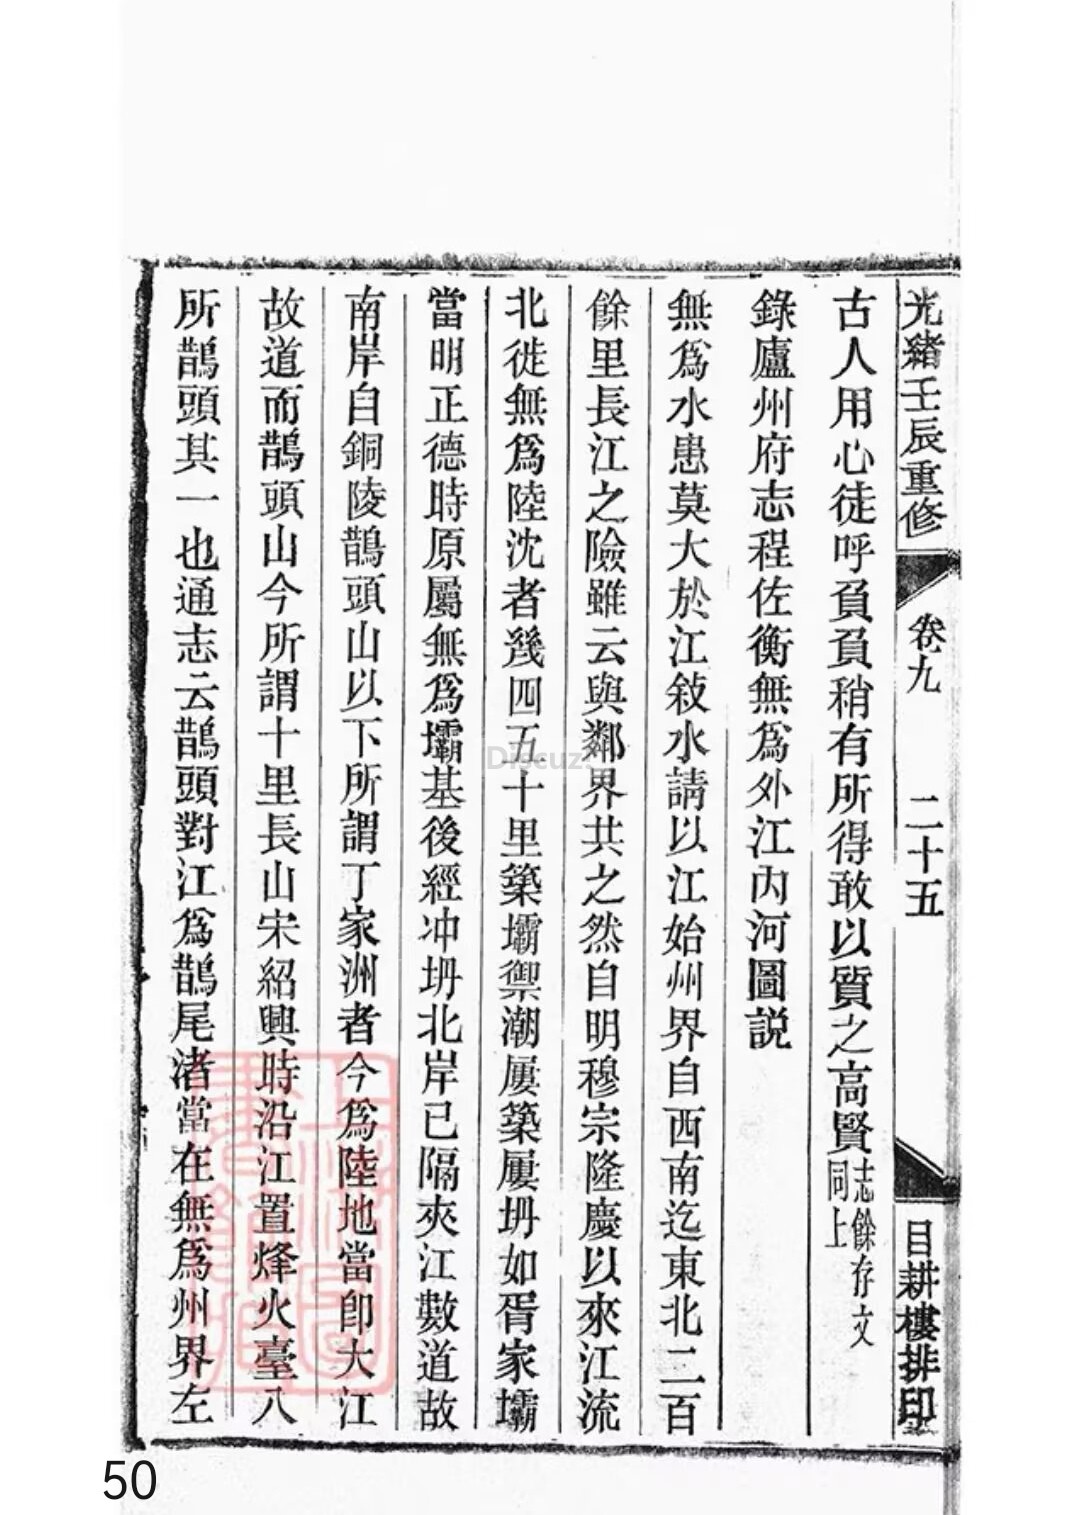 光緒壬辰重修
卷九
二十五
目耕樓排印
古人用心徒呼負負稍有所得敢以質之高賢志餘存文同上
錄廬州府志程佐衡無爲外江內河圖説
無爲水患莫大於江敍水請以江始州界自西南迄東北二百
餘里長江之險雖云與鄰界共之然自明穆宗隆慶以來江流
北徙無爲陸沈者幾四五十里築壩禦潮屢築屢坍如胥家壩
當明正德時原屬無爲壩基後經冲坍北岸已隔夾江數道故
南岸自銅陵鵲頭山以下所謂丁家洲者今爲陸地當卽大江
故道而鵲頭山今所謂十里長山宋紹興時沿江置烽火臺八
所鵲頭其一也通志云鵲頭對江爲鵲尾渚當在無爲州界左
Discuz!
50